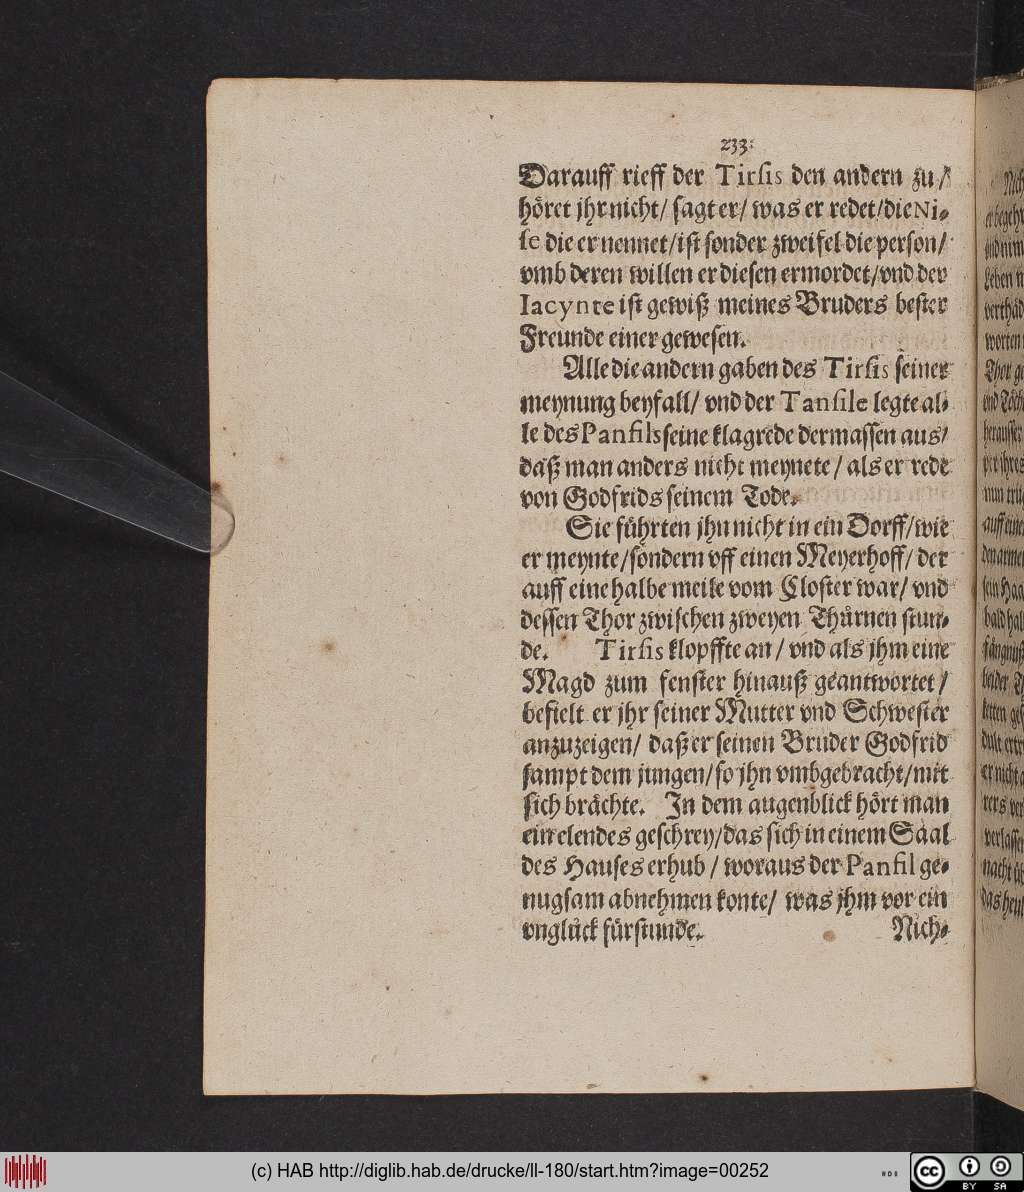 233.
Darauff rieff der Tirsis den andern zu/
höret jhr nicht/ sagt er/ was er redet/ die Ni-
se die er nennet/ ist sonder zweifel die person/
vmb deren willen er diesen ermordet/ vnd der
Iacynte ist gewiß meines Bruders bester
Freunde einer gewesen.
Alle die andern gaben des Tirsis seiner
meynung beyfall/ vnd der Tansile legte al-
le des Panfils seine klagrede dermassen aus/
daß man anders nicht meynete/ als er rede
von Godfrids seinem Tode.
Sie führten jhn nicht in ein Dorff/ wie
er meynte/ sondern vff einen Meyerhoff/ der
auff eine halbe meile vom Closter war/ vnd
dessen Thor zwischen zweyen Thürnen stun-
de. Tirsis klopffte an/ vnd als jhm eine
Magd zum fenster hinauß geantwortet/
befielt er jhr seiner Mutter vnd Schwester
anzuzeigen/ daß er seinen Bruder Godfrid
sampt dem jungen/ so jhn vmbgebracht/ mit
sich brächte. In dem augenblick hört man
ein elendes geschrey/ das sich in einem Saal
des Hauses erhub/ woraus der Panfil ge-
nugsam abnehmen konte/ was jhm vor ein
vnglück fürstunde.
Nich-
(c) HAB http://diglib.hab.de/drucke/ll-180/start.htm?image=00252
cc BY SA